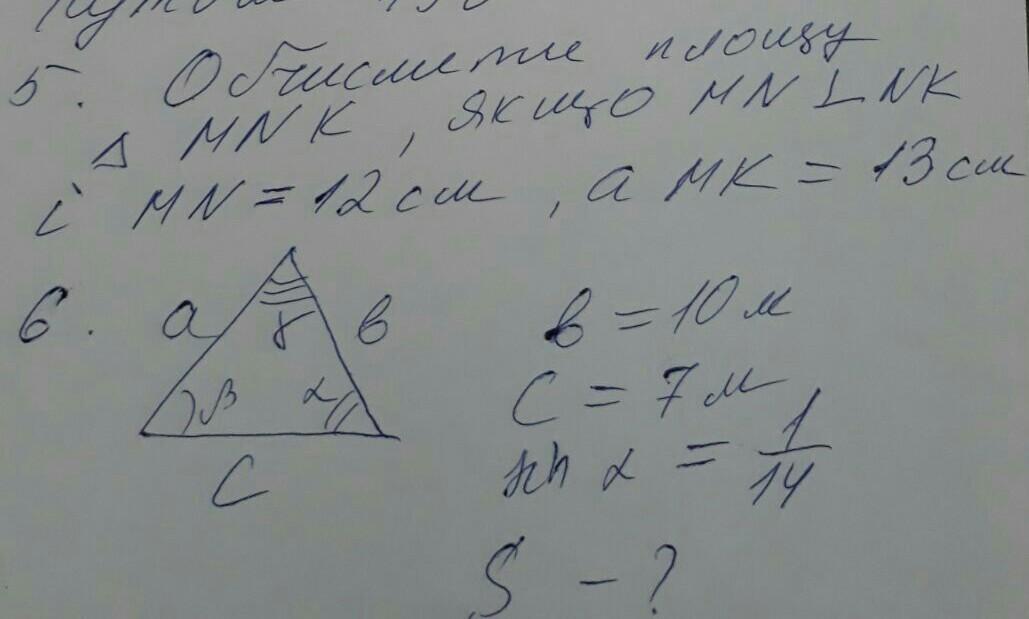 5. Обчисліть площу
Δ MNK, якщо MN ⊥ NK
і MN = 12 см, а MK = 13 см
6. a γ в
β α
c
в = 10 м
c = 7 м
sin α = 1/14
S - ?